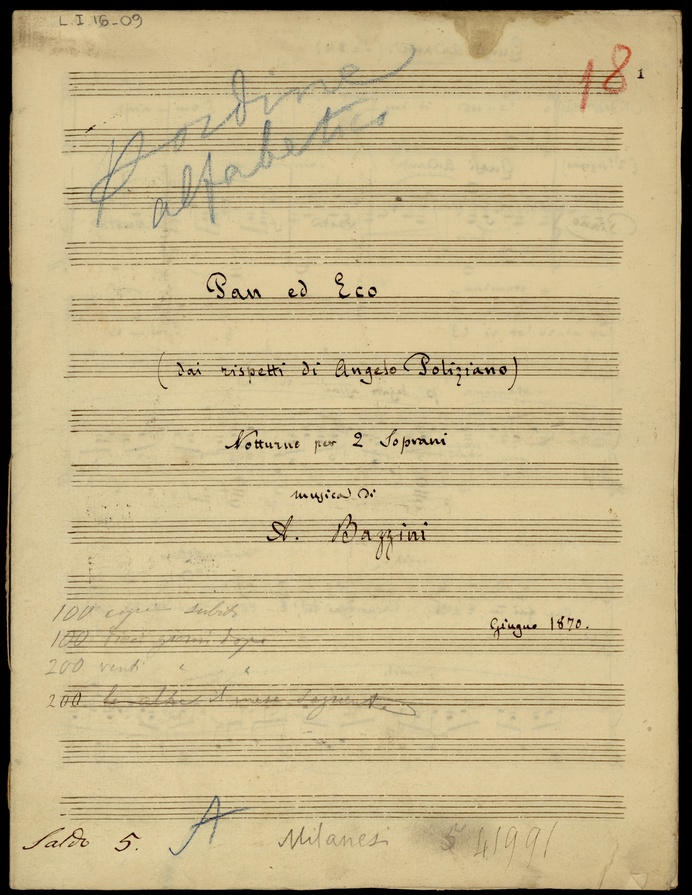 L. I 16-09
18 1
ordine
alfabetico
Pan ed Eco
(dai rispetti di Angelo Poliziano)
Notturno per 2 Soprani
musica di
A. Bazzini
100 copie subito
Giugno 1870.
100 dieci giorni dopo
200 venti " "
200 le altre il mese seguente
Saldo 5. A Milanesi 5 41991